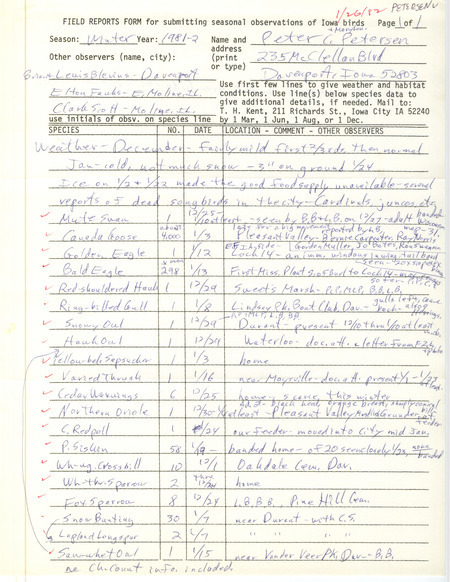 1/26/82 PETERSEN
FIELD REPORTS FORM for submitting seasonal observations of Iowa birds Page 1 of 1
Season: Winter Year: 1981-2 Name and Peter C. Petersen
address 235 McClellan Blvd
Other observers (name, city): (print or type) Davenport, Iowa 52803
Lewis Blevins - Davenport
Elton Fawks - E. Moline, IL.
Clark Scott - Moline, IL.
Use first few lines to give weather and habitat
conditions. Use line(s) below species data to
give additional details, if needed. Mail to:
T. H. Kent, 211 Richards St., Iowa City IA 52240
use initials of obsv. on species line by 1 Mar, 1 Jun, 1 Aug, or 1 Dec.
SPECIES NO. DATE LOCATION - COMMENT - OTHER OBSERVERS
Weather - December - Fairly mild first 2/3rds, then normal
Jan - cold, not much snow - 3" on ground 1/24
Ice on 1/2 + 1/22 made the good food supply unavailable - several
reports of dead song birds in the city - Cardinals, juncos, etc.
Mute Swan 1 12/25 - seen by B.B. + L.B. on 12/27 - adult
Canada Goose about 4,000 1/3 Pleasant Valley - Bernie Carpenter, Ray Morris
Golden Eagle 1 1/12 Lock 14 - an imm. windows in wing, tail band
Bald Eagle 298 1/3 First Miss. Plant S. of Buf. to Lock 14
Red-shouldered Hawk 1 12/29 Sweets Marsh - P.P., M.L.P., B.B., L.B.
Ring-billed Gull 1 1/8 Lindsay Pk. Boat Club, Dav.
Snowy Owl 1 12/29 Durant - present 12/10 thru 1/10 at least
Hawk Owl 1 12/29 Waterloo - doc. att. - a letter from F.Z.L.
Yellow-bel. Sapsucker 1 1/3 home
Varied Thrush 1 1/16 near Maysville - doc. att. present 1/1 - 1/23
Cedar Waxwings 6 12/25 home - scarce this winter
Northern Oriole 1 12/30 Pleasant Valley
C. Redpoll 1 1/24 our feeder - moved into city mid Jan.
P. Siskin 50 1/9 - banded home - of 20 seen closely 1/23, none banded
Wh-wg. Crossbill 10 12/1 Oakdale Cem. Dav.
Wh-thr. Sparrow 2 thru 1/24 home
Fox Sparrow 8 12/24 L.B., B.B., Pine Hill Cem.
Snow Bunting 30 1/7 near Durant - with C.S.
Lapland Longspur 2 1/7 " " " "
Saw-whet Owl 1 1/15 near Vander Veer Pk. Dav - B.B.
no Ch. Count info. included